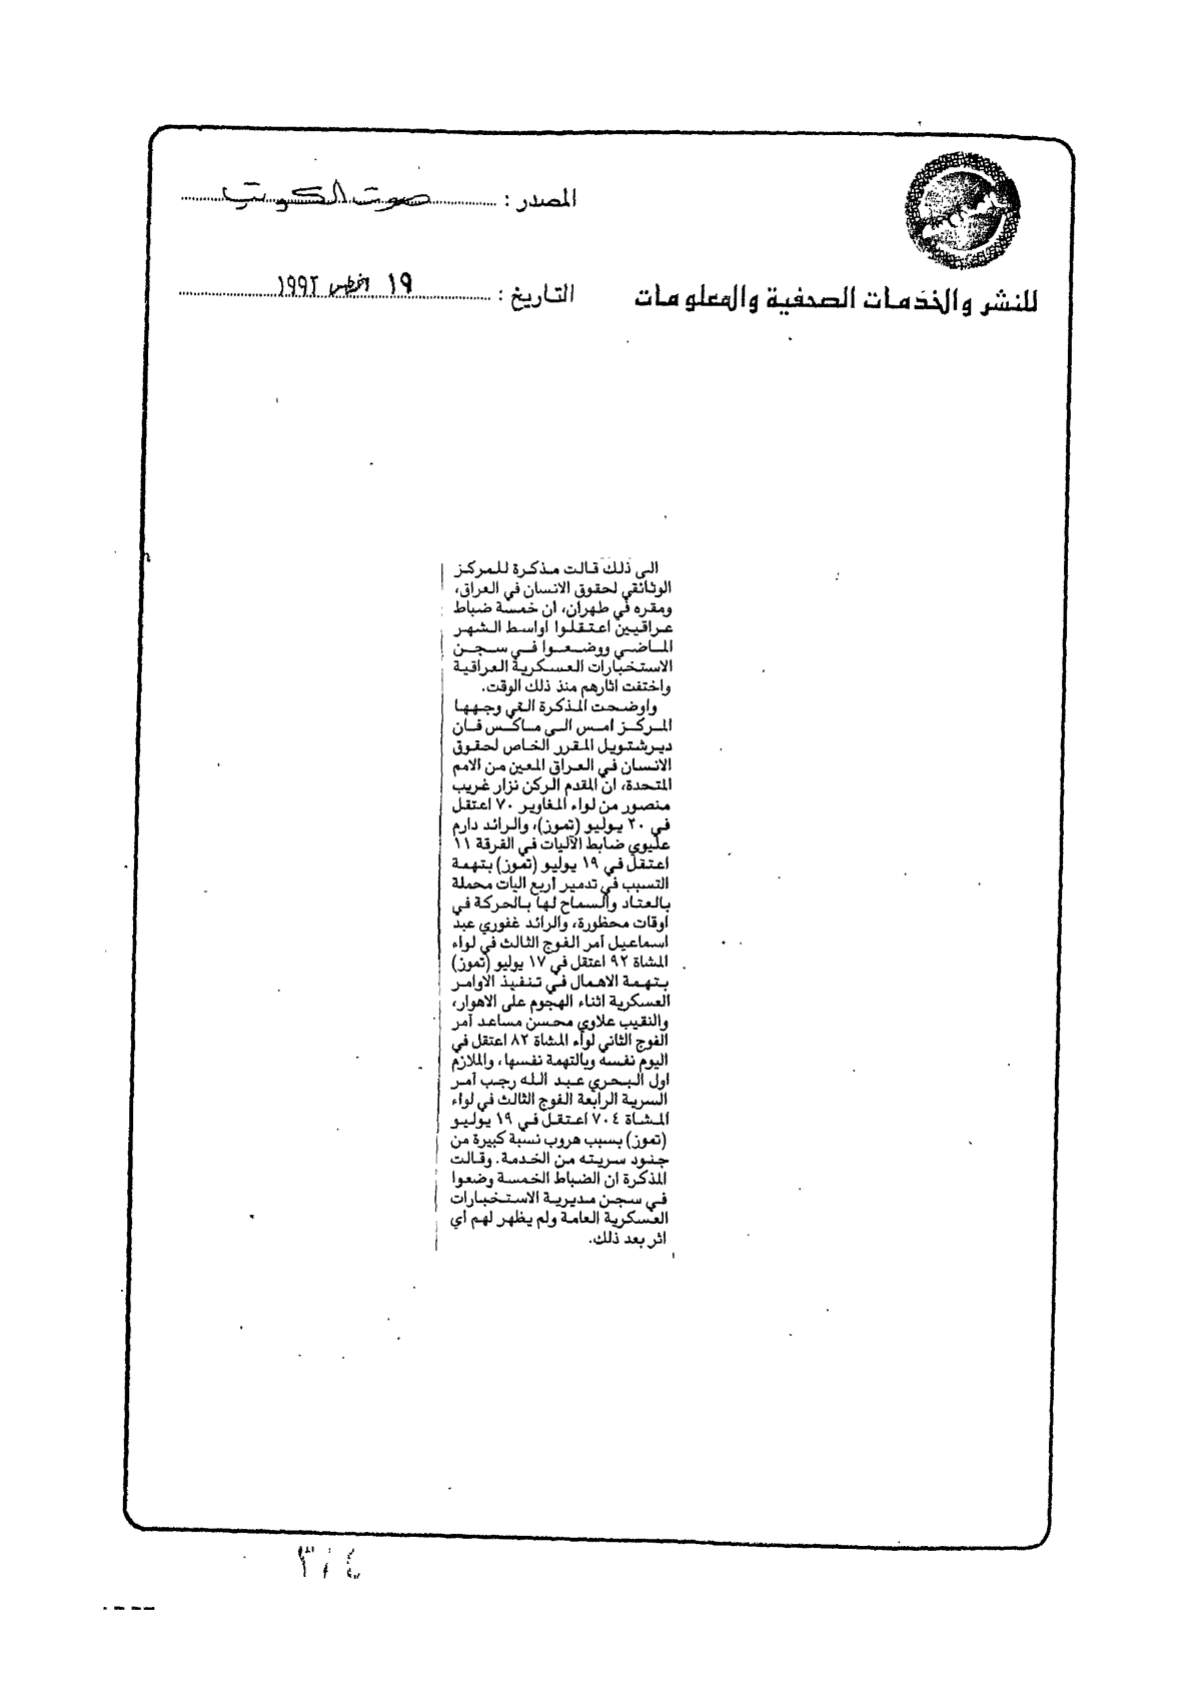 المصدر : صوت الكويت
للنشر والخدمات الصحفية والمعلومات
التاريخ : ١٩ اغسطس ١٩٩٢
الى ذلك قالت مذكرة للمركز
الوثائقي لحقوق الانسان في العراق،
ومقره في طهران، ان خمسة ضباط
عراقيين اعتقلوا اواسط الشهر
الماضي ووضعوا في سجن
الاستخبارات العسكرية العراقية
واختفت اثارهم منذ ذلك الوقت.
واوضحت المذكرة التي وجهها
المركز امس الى ماكس فان
ديرشتويل المقرر الخاص لحقوق
الانسان في العراق المعين من الامم
المتحدة، ان المقدم الركن نزار غريب
منصور من لواء المغاوير ٧٠ اعتقل
في ٢٠ يوليو (تموز)، والرائد دارم
عليوي ضابط الآليات في الفرقة ١١
اعتقل في ١٩ يوليو (تموز) بتهمة
التسبب في تدمير أربع اليات محملة
بالعتاد والسماح لها بالحركة في
اوقات محظورة، والرائد غفوري عبد
اسماعيل آمر الفوج الثالث في لواء
المشاة ٩٢ اعتقل في ١٧ يوليو (تموز)
بتهمة الاهمال في تنفيذ الاوامر
العسكرية اثناء الهجوم على الاهوار،
والنقيب علاوي محسن مساعد آمر
الفوج الثاني لواء المشاة ٨٢ اعتقل في
اليوم نفسه وبالتهمة نفسها، والملازم
اول البحري عبد الله رجب آمر
السرية الرابعة الفوج الثالث في لواء
المشاة ٧٠٤ اعتقل في ١٩ يوليو
(تموز) بسبب هروب نسبة كبيرة من
جنود سريته من الخدمة. وقالت
المذكرة ان الضباط الخمسة وضعوا
في سجن مديرية الاستخبارات
العسكرية العامة ولم يظهر لهم اي
اثر بعد ذلك.